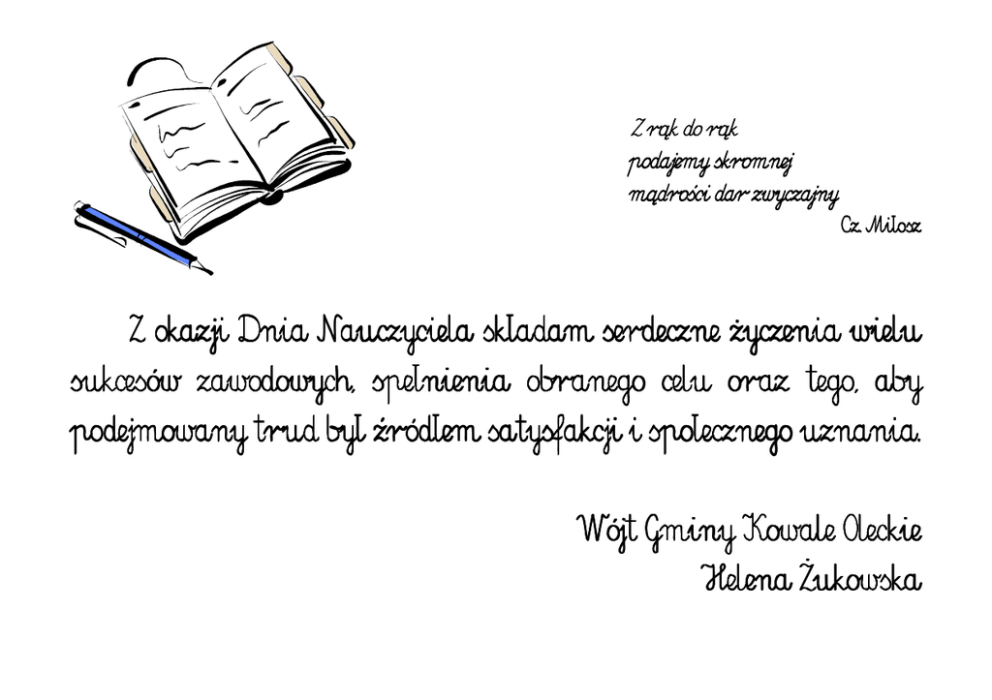 Z rąk do rąk
podajemy skromnej
mądrości dar zwyczajny
Cz. Miłosz
Z okazji Dnia Nauczyciela składam serdeczne życzenia wielu
sukcesów zawodowych, spełnienia obranego celu oraz tego, aby
podejmowany trud był źródłem satysfakcji i społecznego uznania.
Wójt Gminy Kowale Oleckie
Helena Żukowska